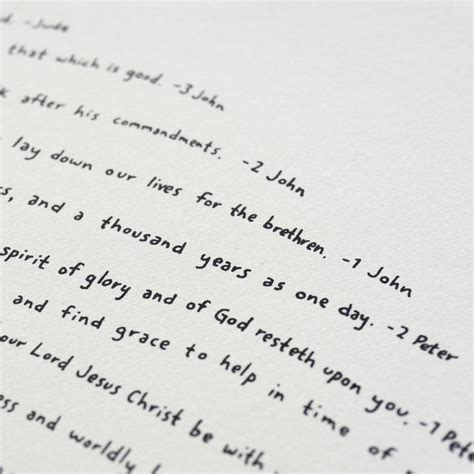 d. -Jude
that which is good. -3 John
k after his commandments. -2 John
lay down our lives for the brethren. -1 John
s, and a thousand years as one day. -2 Peter
spirit of glory and of God resteth upon you. -1 Pete
and find grace to help in time of
our Lord Jesus Christ be with
ess and worldly